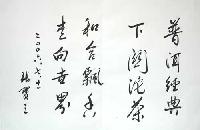 普洱经典
下关沱茶
和合飘香
走向世界
二〇〇六.七.十二